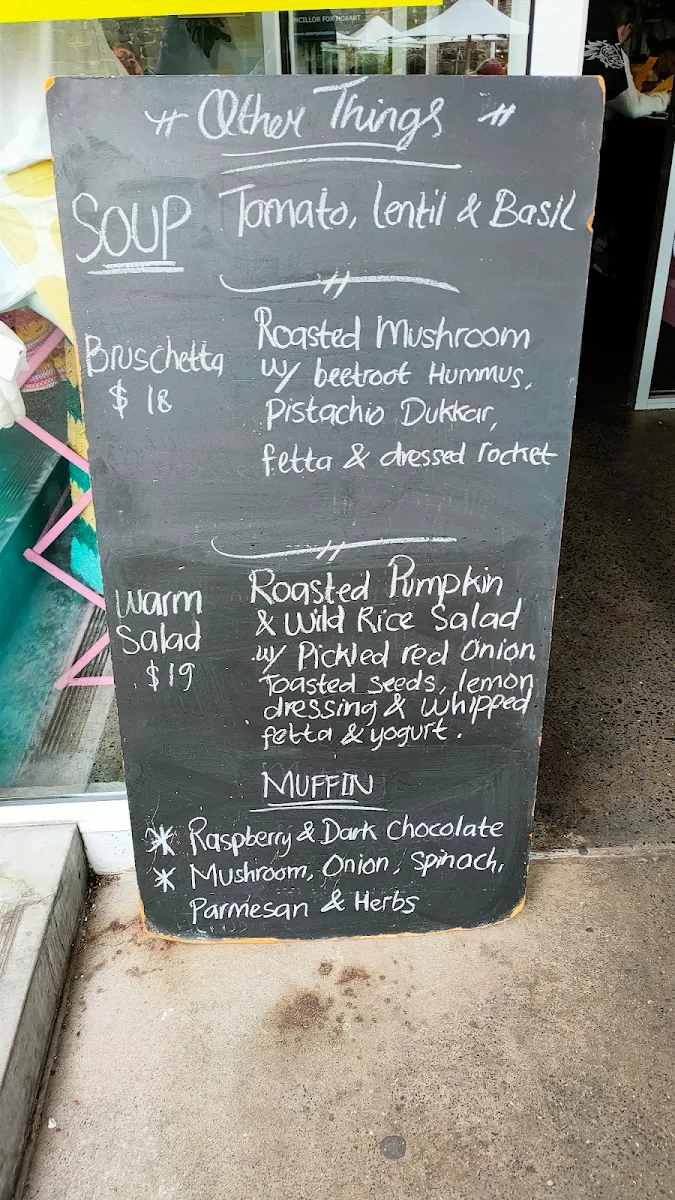 NCILLOR FOR HOBART
Other Things
SOUP Tomato, lentil & Basil
Bruschetta
$ 18
Roasted Mushroom
w/ beetroot Hummus,
Pistachio Dukkar,
fetta & dressed rocket
Warm
Salad
$19
Roasted Pumpkin
& Wild Rice Salad
w/ Pickled red Onion,
Toasted seeds, lemon
dressing & whipped
fetta & yogurt.
MUFFIN
* Raspberry & Dark Chocolate
* Mushroom, Onion, Spinach,
Parmesan & Herbs